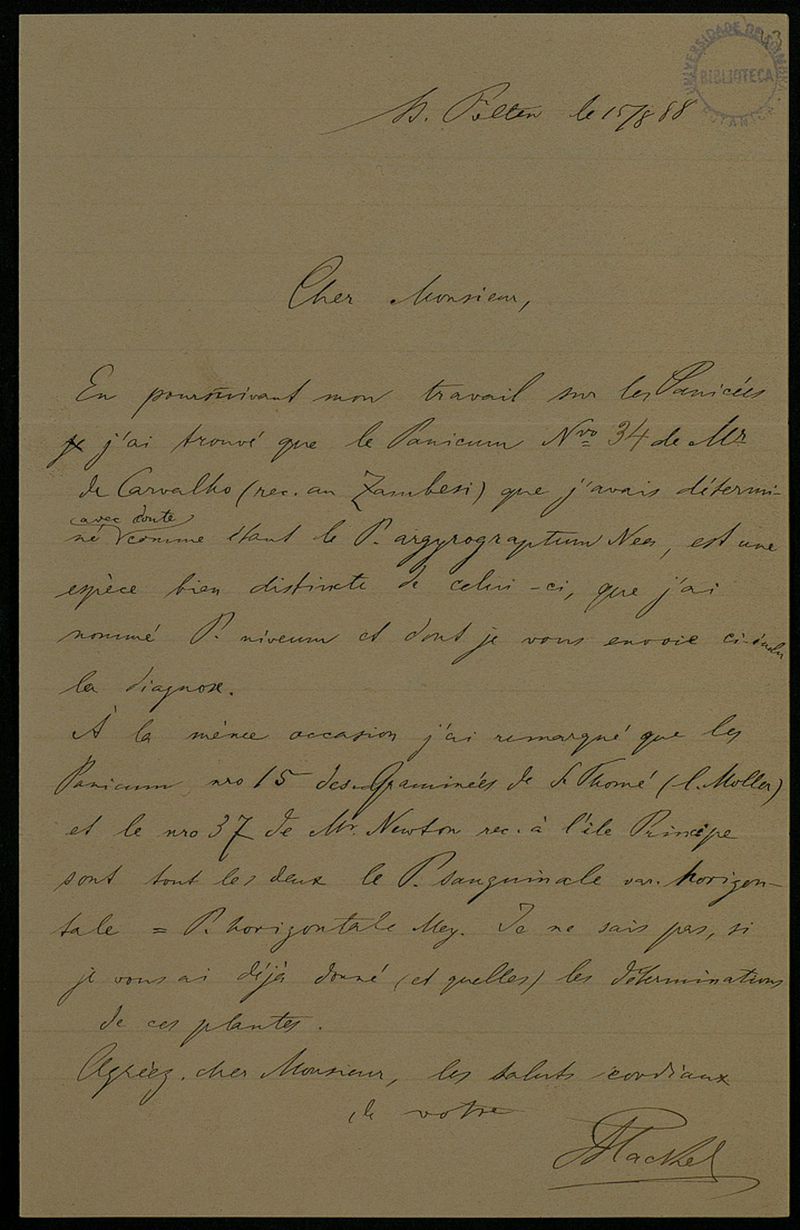 UNIVERSIDADE DE COIMBRA
BIBLIOTECA
BOTANICA
St. Pölten le 15/8 88
Cher Monsieur,
En poursuivant mon travail sur les Panicées
j'ai trouvé que le Panicum Nro 34 de Mr
de Carvalho (rec. au Zambesi) que j'avais détermi-
avec doute
né comme étant le P. argyrograptum Nees, est une
espèce bien distincte de celui-ci, que j'ai
nommé P. niveum et dont je vous envoie ci-inclus
la diagnose.
À la même occasion j'ai remarqué que les
Panicum nro 15 des Graminées de St Thomé (l. Moller)
et le nro 37 de Mr. Newton rec. à l'île Principe
sont tout les deux le P. sanguinale var. horizon-
tale = P. horizontale Mey. Je ne sais pas, si
je vous ai déjà donné (et quelles) les déterminations
de ces plantes.
Agréez, cher Monsieur, les saluts cordiaux
de votre
Hackel